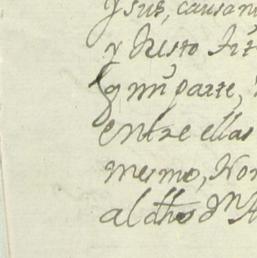 y sub, causan
y Justo tit
q mi parte,
entre ellas
mesmo, Non
al dho Dn A